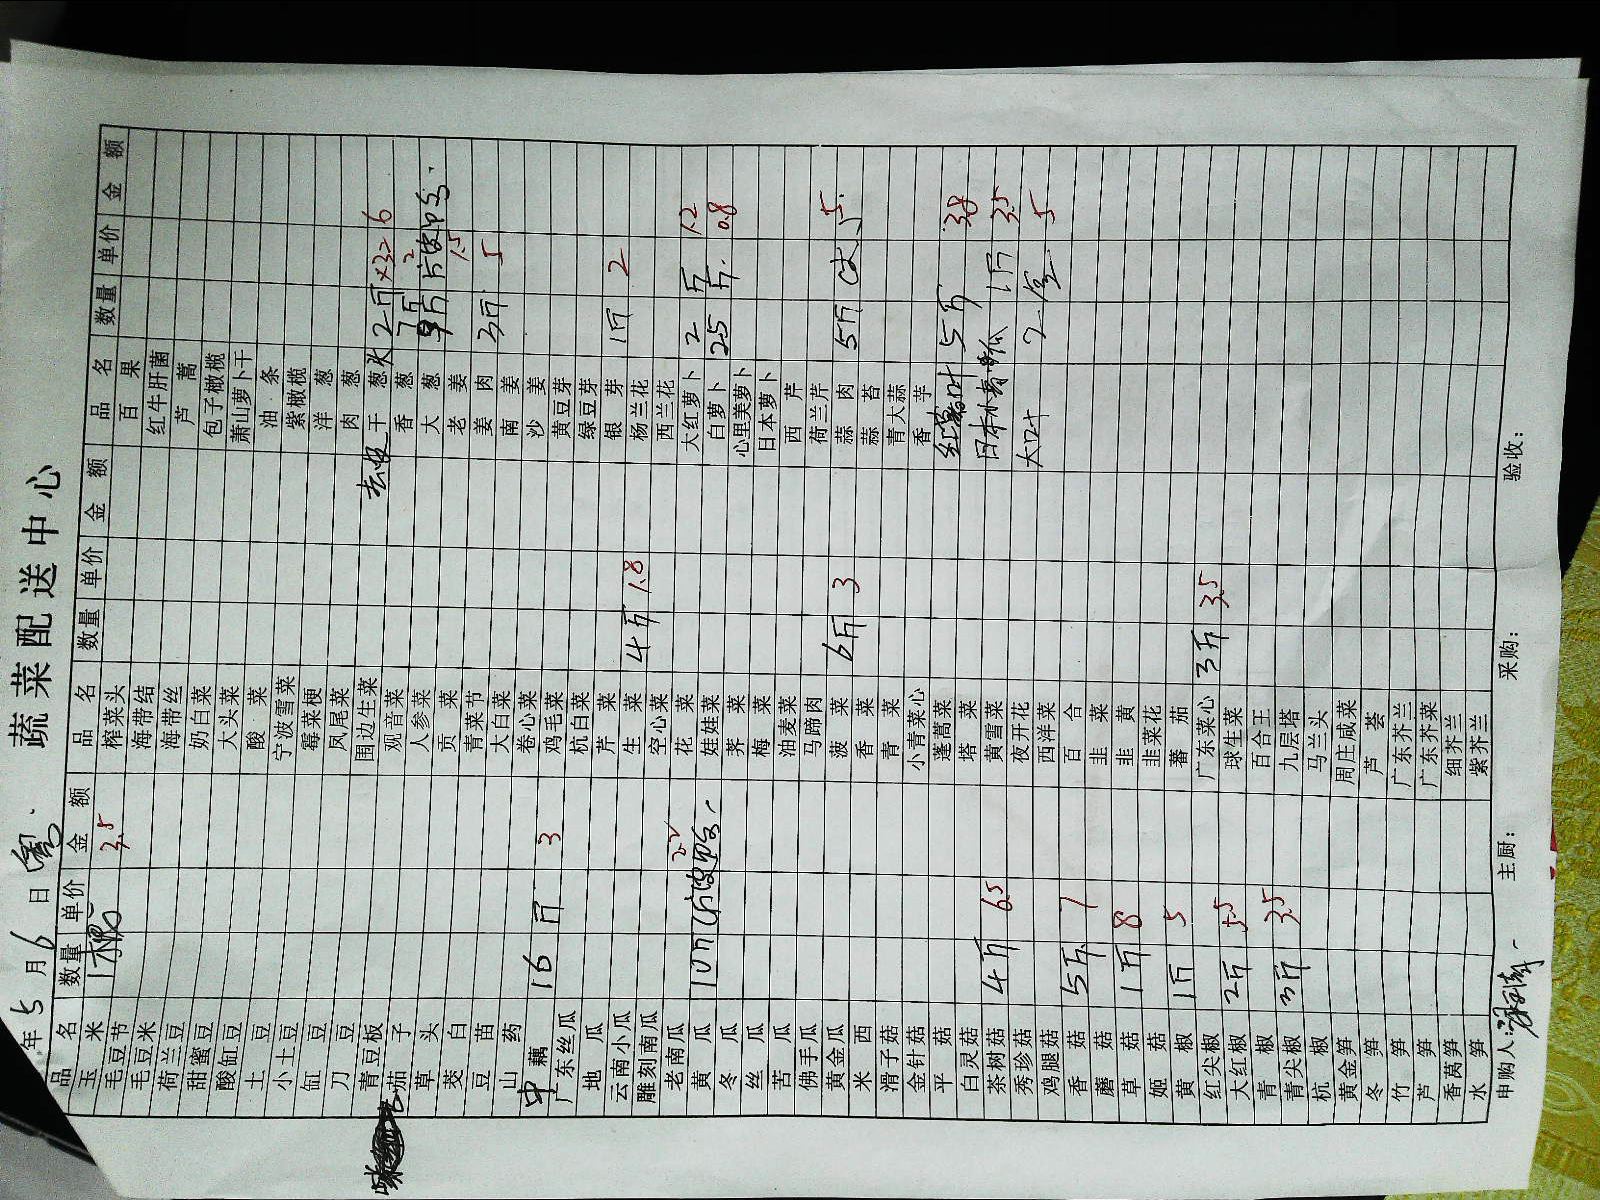 蔬菜配送中心
年 5 月 6 日
品名 数量 单价 金额 品名 数量 单价 金额 品名 数量 单价 金额
玉米 1 3.5 榨菜头 百果
毛豆节 海带结 红牛肝菌
毛豆米 海带丝 芦蒿
荷兰豆 奶白菜 包子橄榄
甜蜜豆 大头菜 萧山萝卜干
酸缸豆 酸菜 油条
土豆 宁波雪菜 紫橄榄
小土豆 霉菜梗 洋葱
缸豆 凤尾菜 肉葱
刀豆 围边生菜 去皮干葱头 2斤 ×32 6
青豆板 观音菜 香葱 7斤 2
茄子 人参菜 大葱 1.5
草头 贡菜 老姜
茭白 青菜节 姜肉 3斤 5
豆苗 大白菜 南姜
山药 卷心菜 沙姜
中藕 16斤 3 鸡毛菜 黄豆芽
广东丝瓜 杭白菜 绿豆芽
地瓜 芹菜 银芽 1斤 2
云南小瓜 生菜 4斤 1.8 杨兰花
雕刻南瓜 空心菜 西兰花
老南瓜 花菜 大红萝卜 2斤 1.2
黄瓜 10斤 2.2 娃娃菜 白萝卜 25斤 0.8
冬瓜 荠菜 心里美萝卜
丝瓜 梅菜 日本萝卜
苦瓜 油麦菜 西芹
佛手瓜 马蹄肉 荷兰芹
黄金瓜 菠菜 6斤 3 蒜肉 5斤(大) 5
米西 香菜 蒜苔
滑子菇 青菜 青大蒜
金针菇 小青菜心 香芋
平菇 蓬蒿菜 5斤 3.8
白灵菇 塔菜
茶树菇 4斤 6.5 黄雪菜 日本小青瓜 1斤 3.5
秀珍菇 夜开花 大叶 2盒 5
鸡腿菇 西洋菜
香菇 5斤 7 百合
蘑菇 韭菜
草菇 1斤 8 韭黄
姬菇 韭菜花
黄椒 1斤 5 蕃茄
红尖椒 广东菜心 3斤 3.5
大红椒 2斤 5.5 球生菜
青椒 百合王
青尖椒 3斤 3.5 九层塔
杭椒 马兰头
黄金笋 周庄咸菜
冬笋 芦荟
竹笋 广东芥兰
芦笋 广东芥菜
香莴笋 细芥兰
水笋 紫芥兰
申购人: 主厨: 采购: 验收: